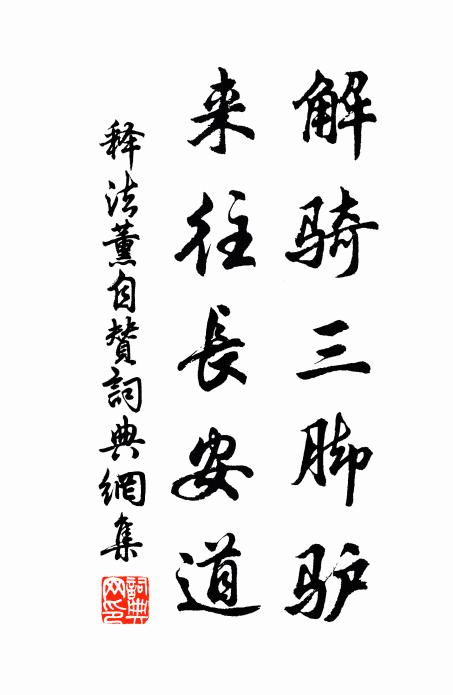 解骑三脚驴
来往長安道
释法薰自赞詞典網集
詞典網印